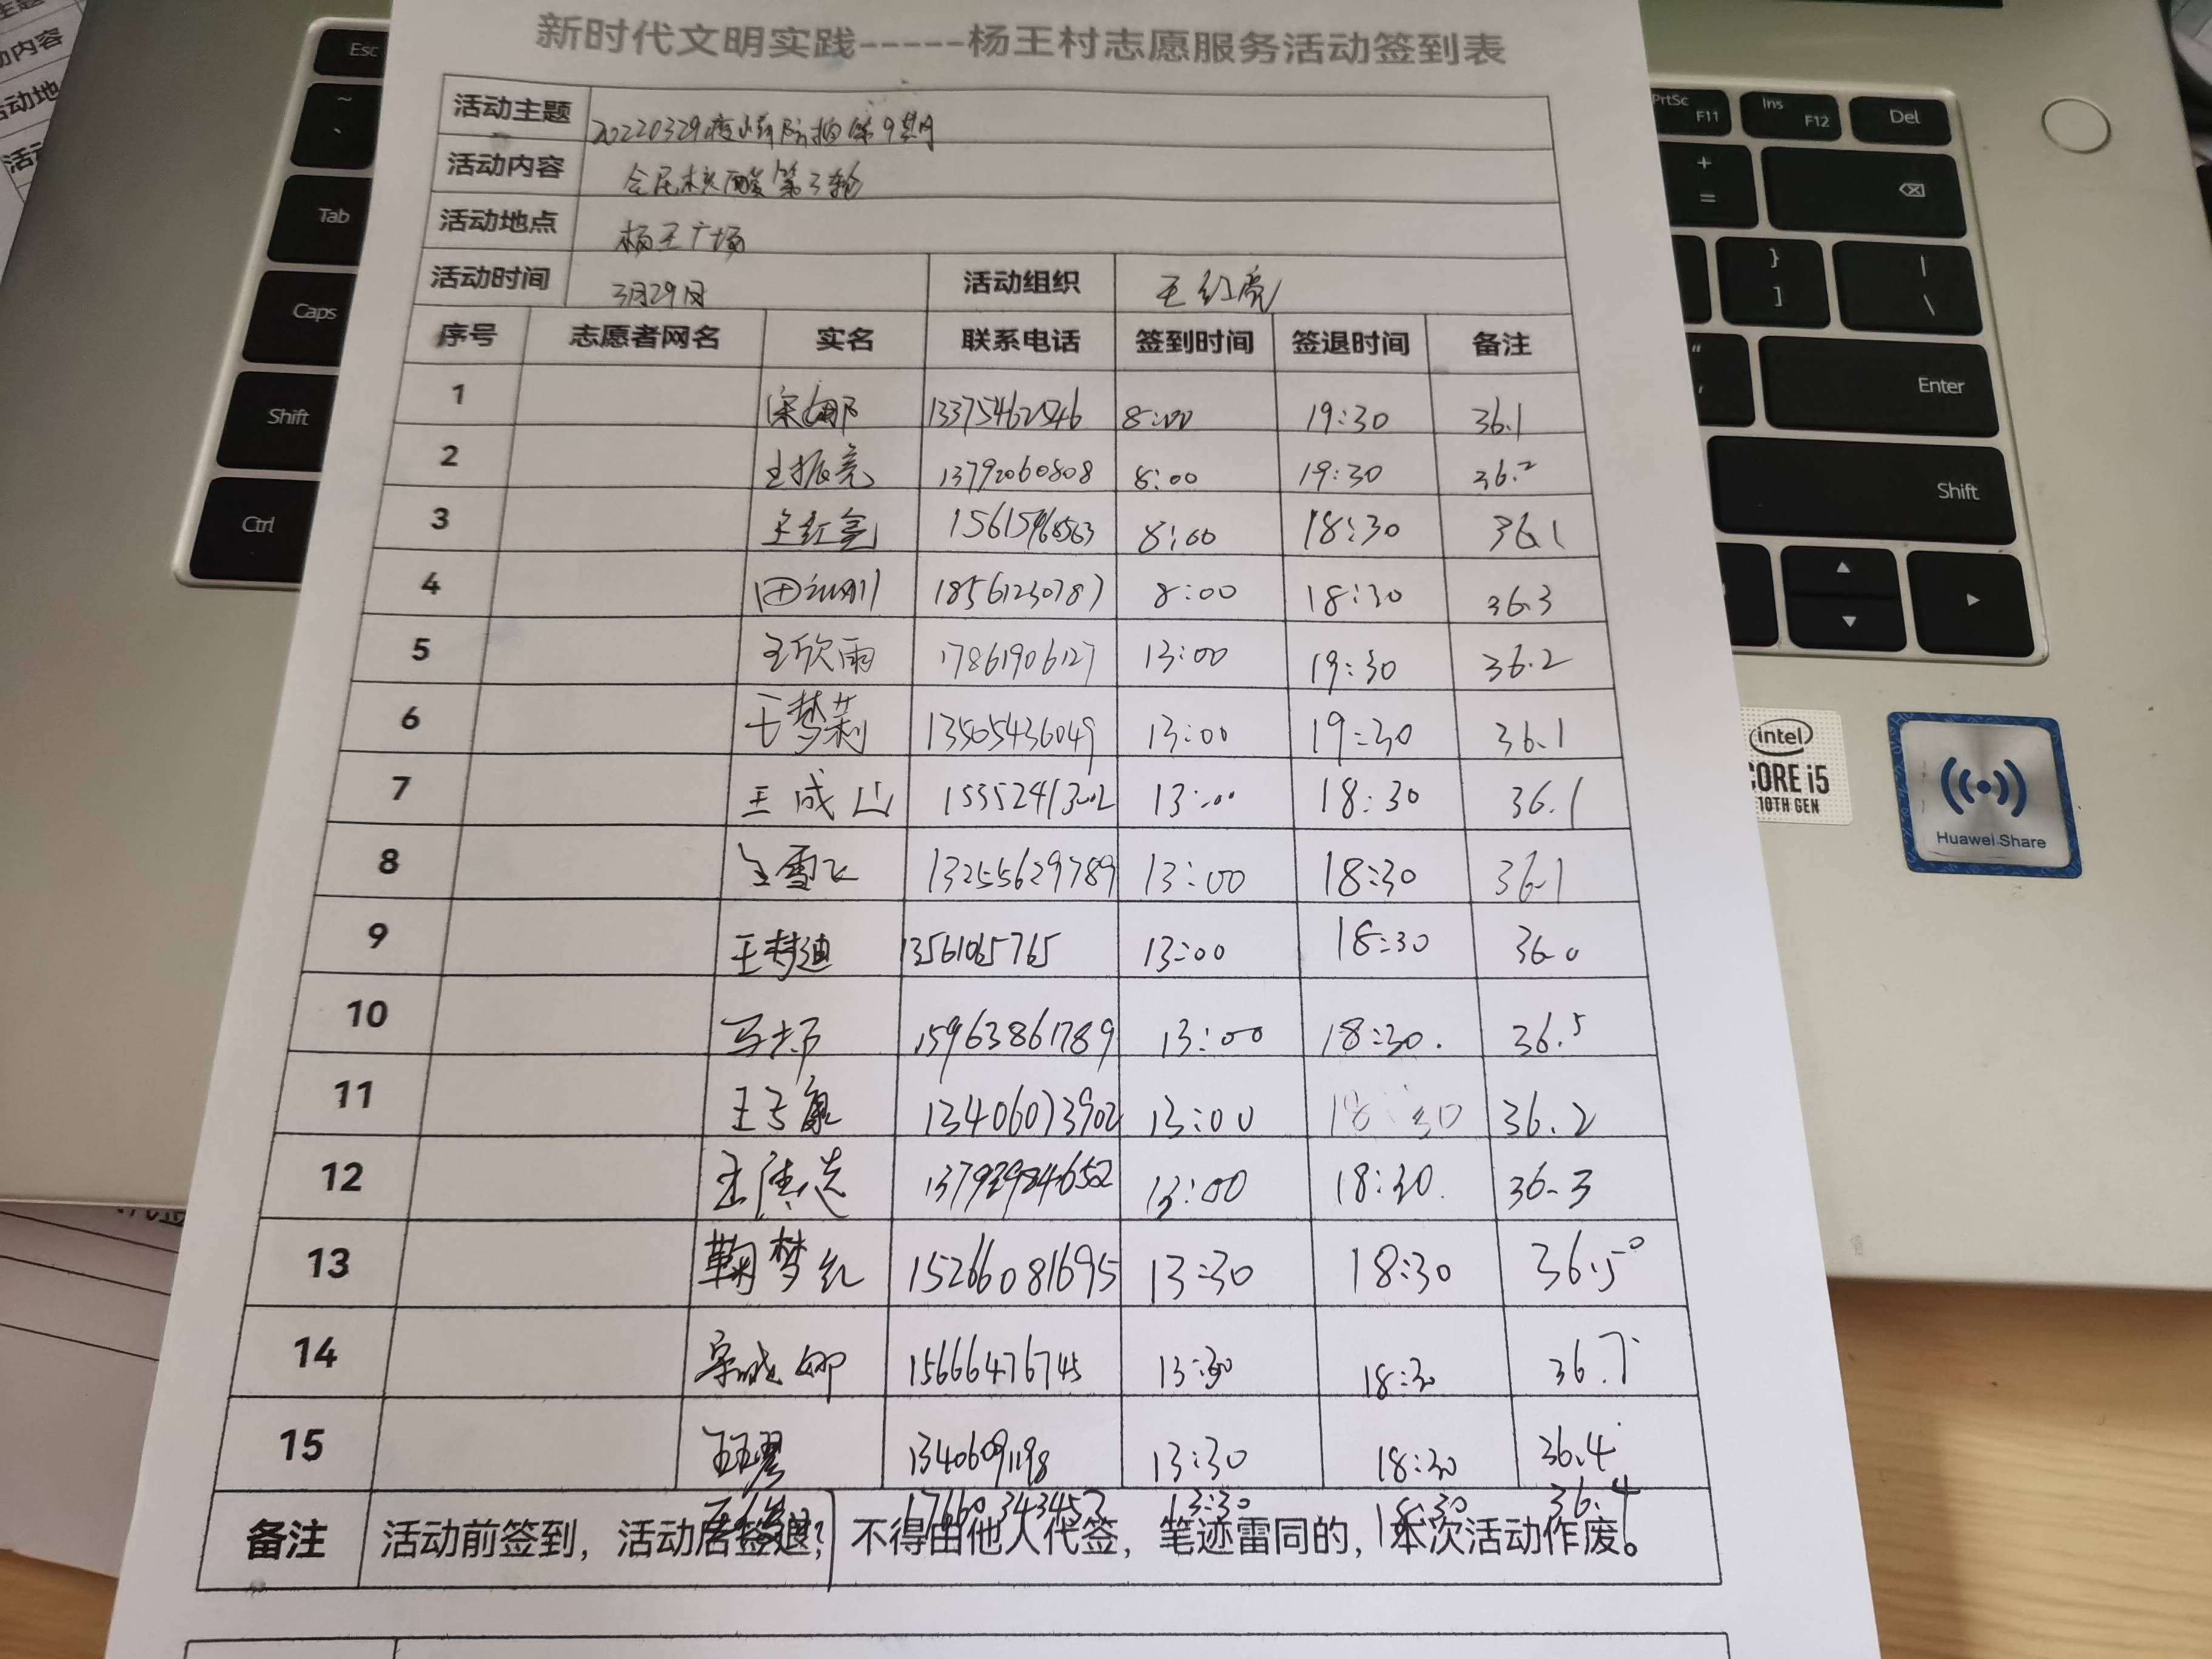 新时代文明实践-----杨王村志愿服务活动签到表
活动主题 20220329疫情防控第9期
活动内容 全民核酸第3轮
活动地点 杨王广场
活动时间 3月29日 活动组织 王红亮
序号 志愿者网名 实名 联系电话 签到时间 签退时间 备注
1 13375462546 8:00 19:30 36.1
2 王振亮 13792060808 8:00 19:30 36.2
3 王红亮 15615468563 8:00 18:30 36.1
4 18561230787 8:00 18:30 36.3
5 王欣雨 17861906127 13:00 19:30 36.2
6 王梦莉 13505436049 13:00 19:30 36.1
7 王成山 15352413002 13:00 18:30 36.1
8 王雪飞 13255629789 13:00 18:30 36.1
9 王梦迪 13561065765 13:00 18:30 36.0
10 15963861789 13:00 18:30. 36.5
11 13406073902 13:00 18:30 36.2
12 13:00 18:30. 36.3
13 鞠梦红 15266081695 13:30 18:30 36.5°
14 宋晓娜 15666476745 13:30 18:30 36.7
15 13406091198 13:30 18:30 36.4
17660343453 13:30 18:30 36.4
备注 活动前签到，活动后签退，不得由他人代签，笔迹雷同的，本次活动作废。
Esc
~
`
Tab
Caps
Shift
Ctrl
PrtSc F11
Ins F12
Del
+
=
}
]
|
\
"
'
Enter
Shift
intel
CORE i5
10TH GEN
Huawei Share